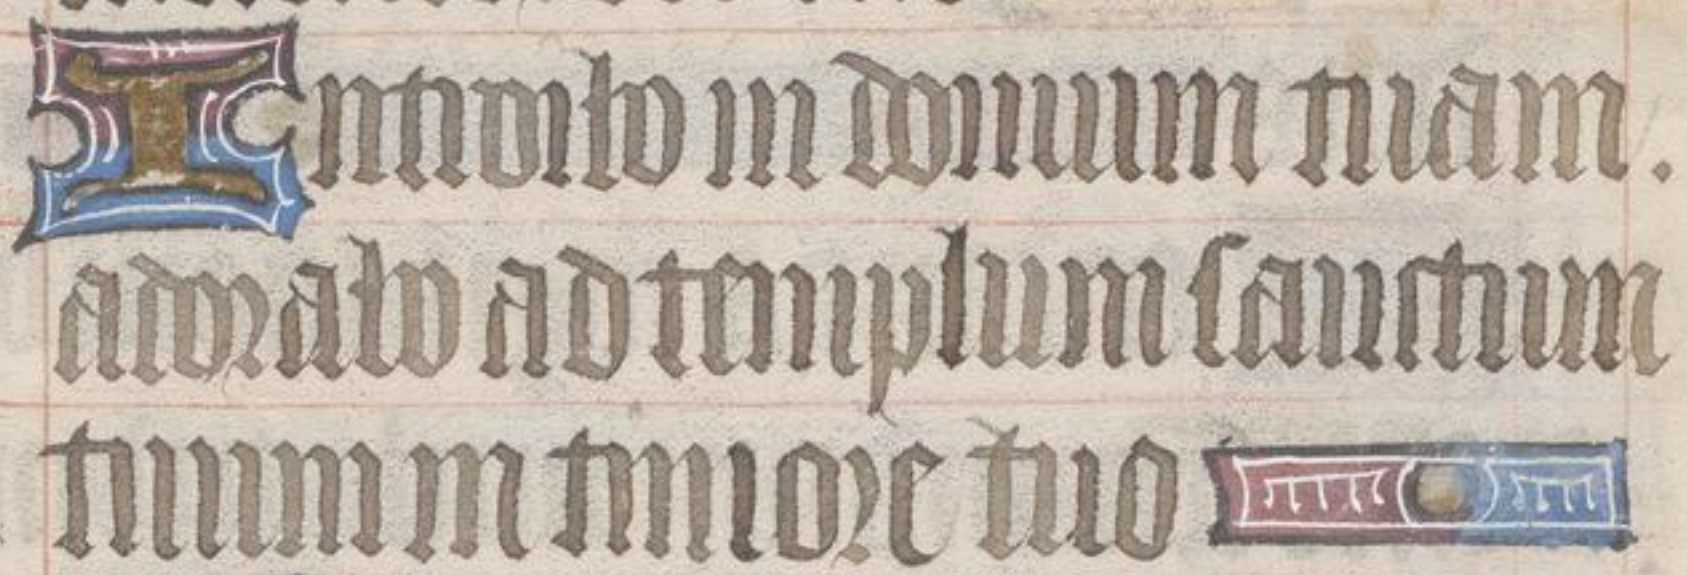 Introibo in domum tuam.
adorabo ad templum sanctum
tuum in timore tuo